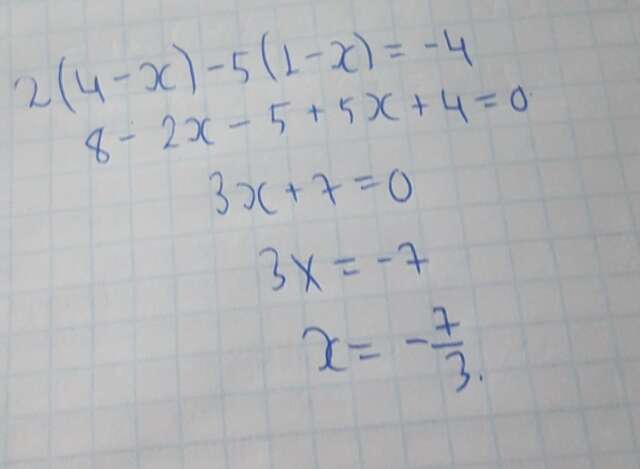 2(4-x)-5(1-x)=-4
8-2x-5+5x+4=0
3x+7=0
3x=-7
x=-7/3.